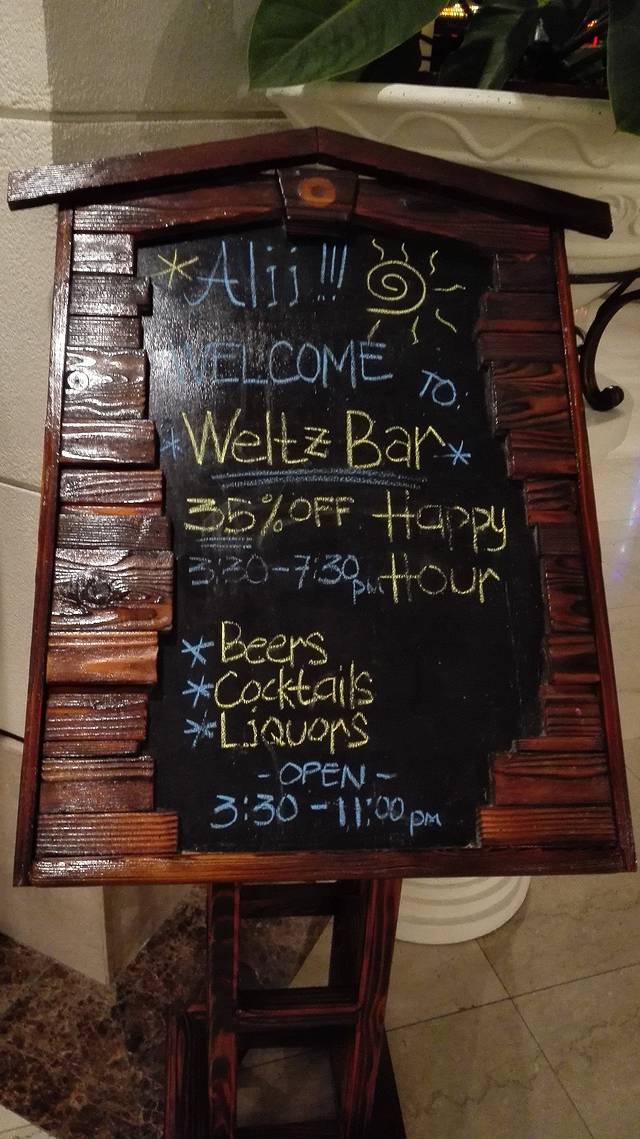 *Alii!!!
WELCOME TO:
*Weltz Bar*
35% OFF Happy
3:30-7:30pm Hour
*Beers
*Cocktails
*Liquors
-OPEN-
3:30-11:00pm